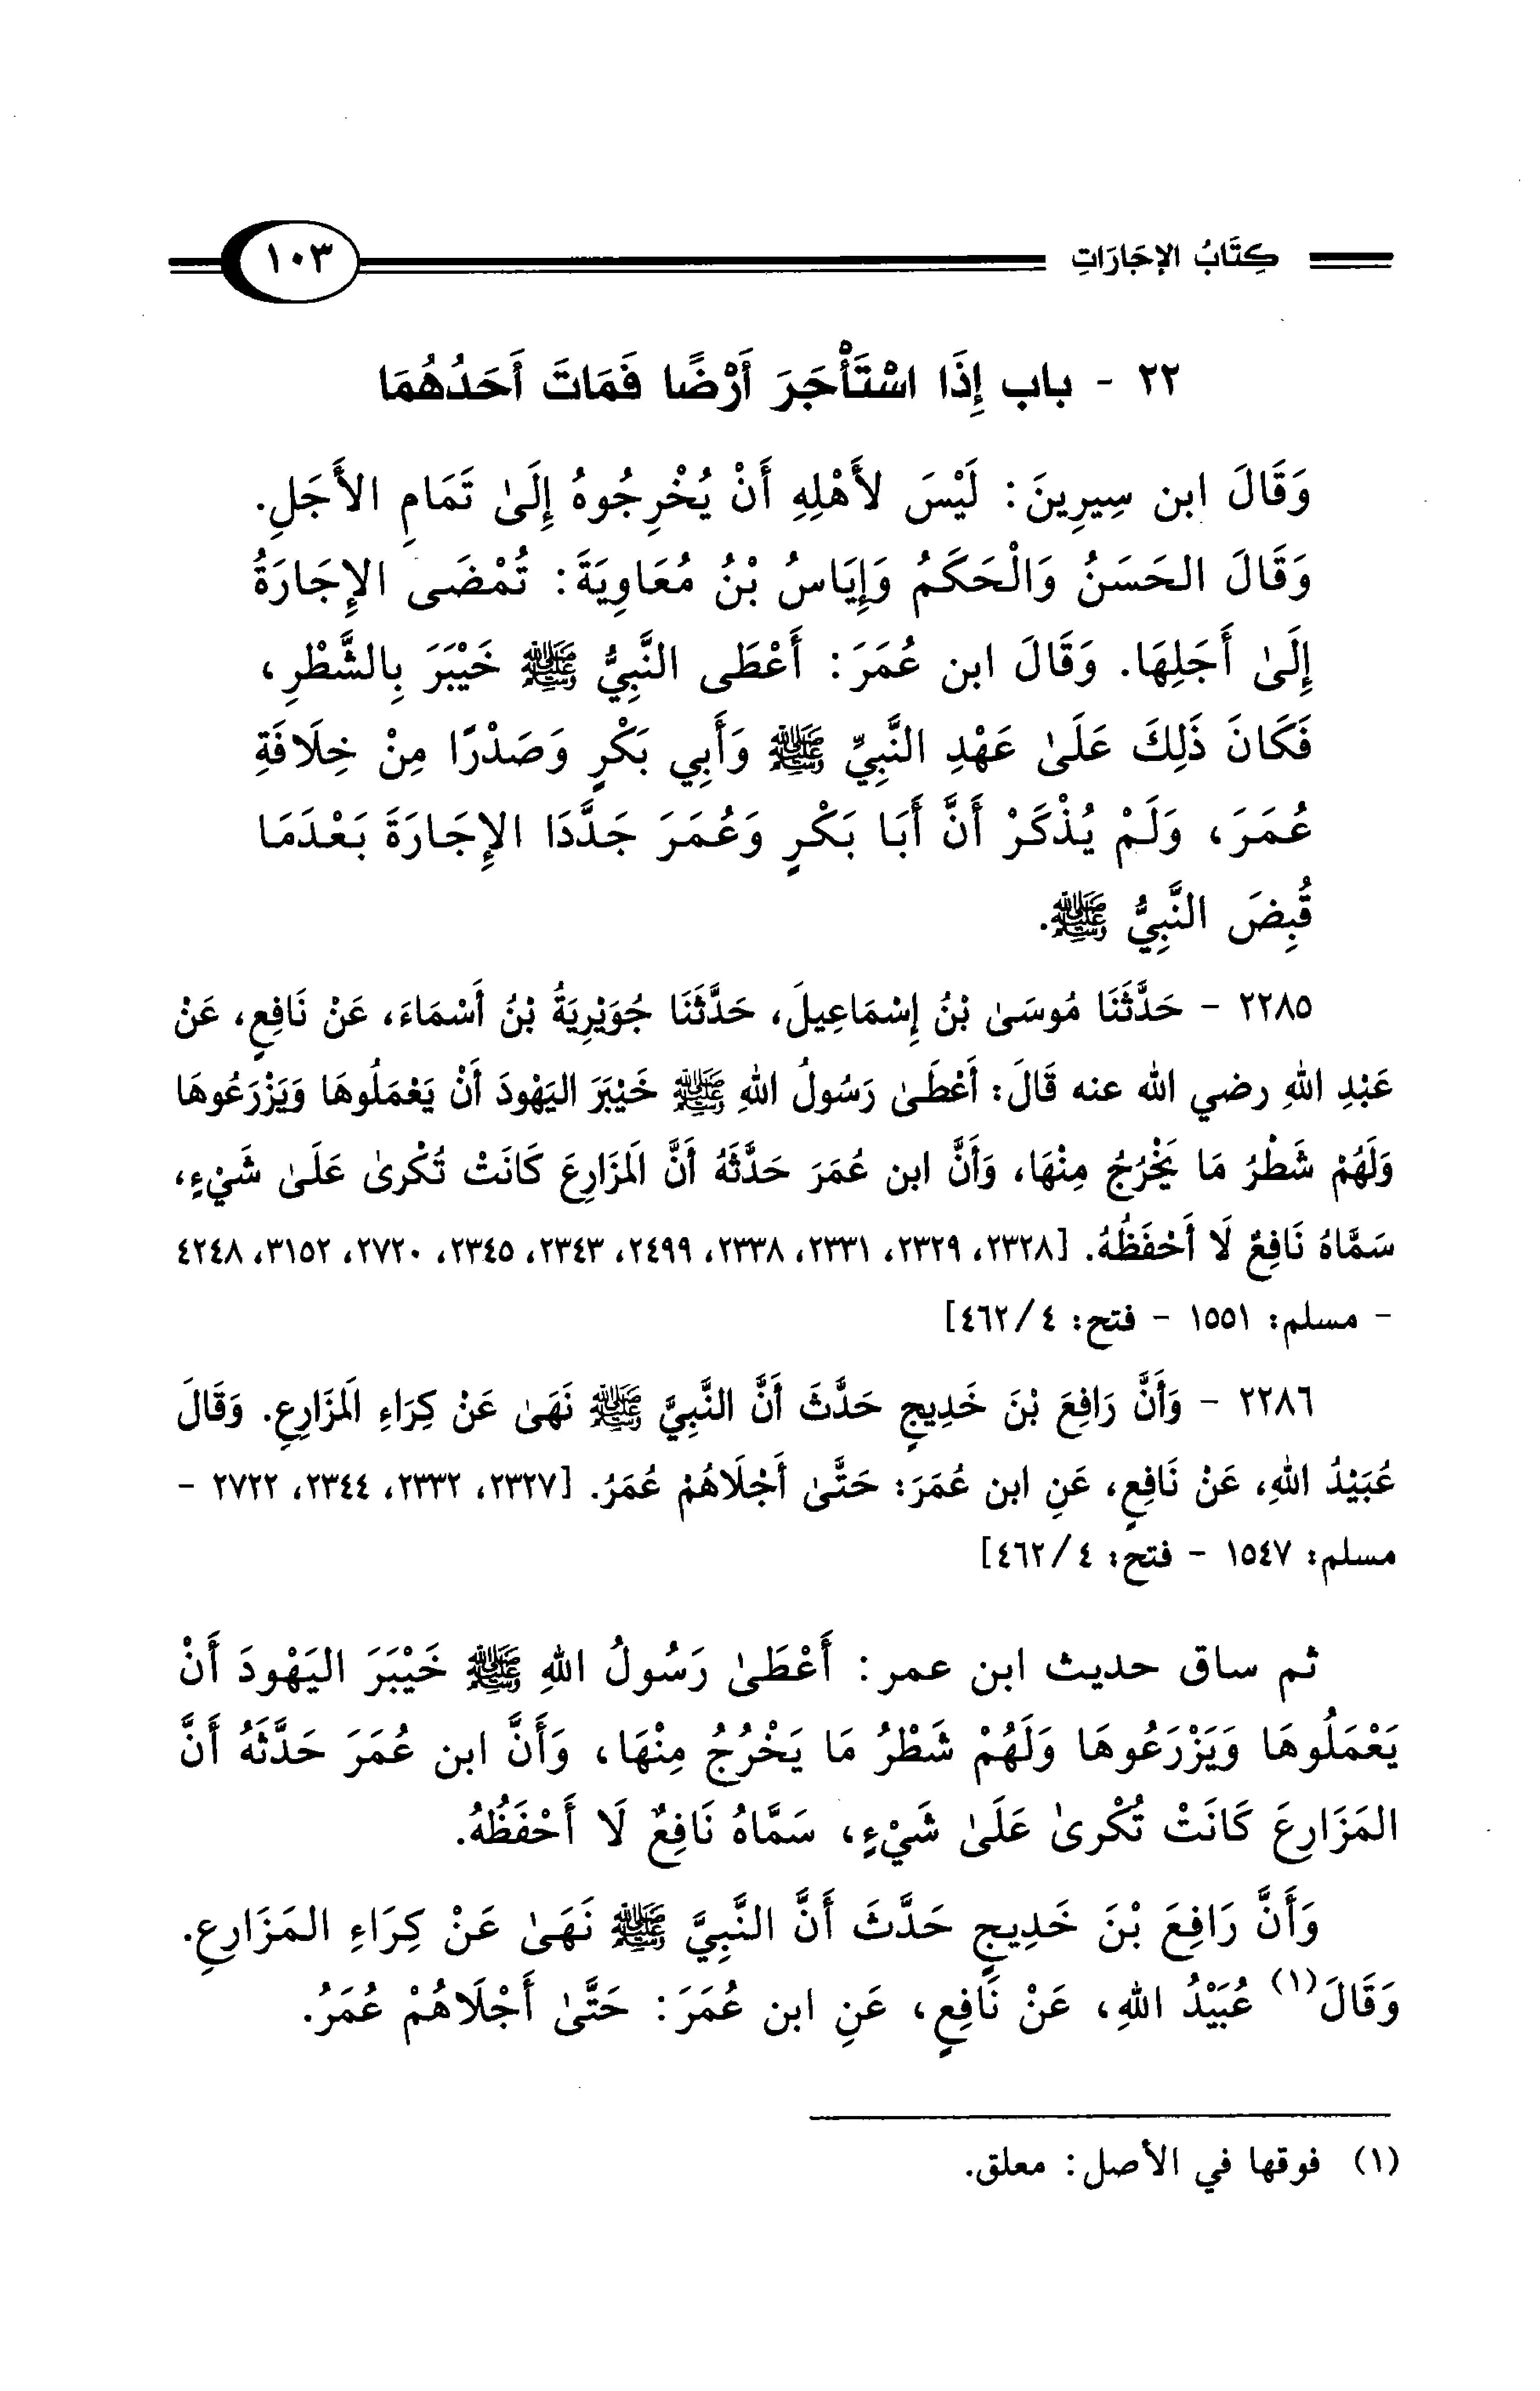 كِتَابُ الإجَارَاتِ ١٠٣
٢٢ - باب إِذَا اسْتَأْجَرَ أَرْضًا فَمَاتَ أَحَدُهُمَا
وَقَالَ ابن سِيرِينَ: لَيْسَ لأَهْلِهِ أَنْ يُخْرِجُوهُ إِلَىٰ تَمَامِ الأَجَلِ.
وَقَالَ الحَسَنُ وَالْحَكَمُ وَإِيَاسُ بْنُ مُعَاوِيَةَ: تُمْضَى الإِجَارَةُ
إِلَىٰ أَجَلِهَا. وَقَالَ ابن عُمَرَ: أَعْطَى النَّبِيُّ ﷺ خَيْبَرَ بِالشَّطْرِ،
فَكَانَ ذَلِكَ عَلَىٰ عَهْدِ النَّبِيِّ ﷺ وَأَبِي بَكْرٍ وَصَدْرًا مِنْ خِلَافَةِ
عُمَرَ، وَلَمْ يُذْكَرْ أَنَّ أَبَا بَكْرٍ وَعُمَرَ جَدَّدَا الإِجَارَةَ بَعْدَمَا
قُبِضَ النَّبِيُّ ﷺ.
٢٢٨٥ - حَدَّثَنَا مُوسَىٰ بْنُ إِسْمَاعِيلَ، حَدَّثَنَا جُوَيْرِيَةُ بْنُ أَسْمَاءَ، عَنْ نَافِعٍ، عَنْ
عَبْدِ اللهِ رضي الله عنه قَالَ: أَعْطَىٰ رَسُولُ اللهِ ﷺ خَيْبَرَ اليَهُودَ أَنْ يَعْمَلُوهَا وَيَزْرَعُوهَا
وَلَهُمْ شَطْرُ مَا يَخْرُجُ مِنْهَا، وَأَنَّ ابن عُمَرَ حَدَّثَهُ أَنَّ المَزَارِعَ كَانَتْ تُكْرىٰ عَلَىٰ شَيْءٍ،
سَمَّاهُ نَافِعٌ لَا أَحْفَظُهُ. [٢٣٢٨، ٢٣٢٩، ٢٣٣١، ٢٣٣٨، ٢٤٩٩، ٢٣٤٣، ٢٣٤٥، ٢٧٢٠، ٣١٥٢، ٤٢٤٨
- مسلم: ١٥٥١ - فتح: ٤/ ٤٦٢]
٢٢٨٦ - وَأَنَّ رَافِعَ بْنَ خَدِيجٍ حَدَّثَ أَنَّ النَّبِيَّ ﷺ نَهَىٰ عَنْ كِرَاءِ المَزَارِعِ. وَقَالَ
عُبَيْدُ اللهِ، عَنْ نَافِعٍ، عَنِ ابن عُمَرَ: حَتَّىٰ أَجْلَاهُمْ عُمَرُ. [٢٣٢٧، ٢٣٣٢، ٢٣٤٤، ٢٧٢٢ -
مسلم: ١٥٤٧ - فتح: ٤/ ٤٦٢]
ثم ساق حديث ابن عمر: أَعْطَىٰ رَسُولُ اللهِ ﷺ خَيْبَرَ اليَهُودَ أَنْ
يَعْمَلُوهَا وَيَزْرَعُوهَا وَلَهُمْ شَطْرُ مَا يَخْرُجُ مِنْهَا، وَأَنَّ ابن عُمَرَ حَدَّثَهُ أَنَّ
المَزَارِعَ كَانَتْ تُكْرىٰ عَلَىٰ شَيْءٍ، سَمَّاهُ نَافِعٌ لَا أَحْفَظُهُ.
وَأَنَّ رَافِعَ بْنَ خَدِيجٍ حَدَّثَ أَنَّ النَّبِيَّ ﷺ نَهَىٰ عَنْ كِرَاءِ المَزَارِعِ.
وَقَالَ(١) عُبَيْدُ اللهِ، عَنْ نَافِعٍ، عَنِ ابن عُمَرَ: حَتَّىٰ أَجْلَاهُمْ عُمَرُ.
(١) فوقها في الأصل: معلق.